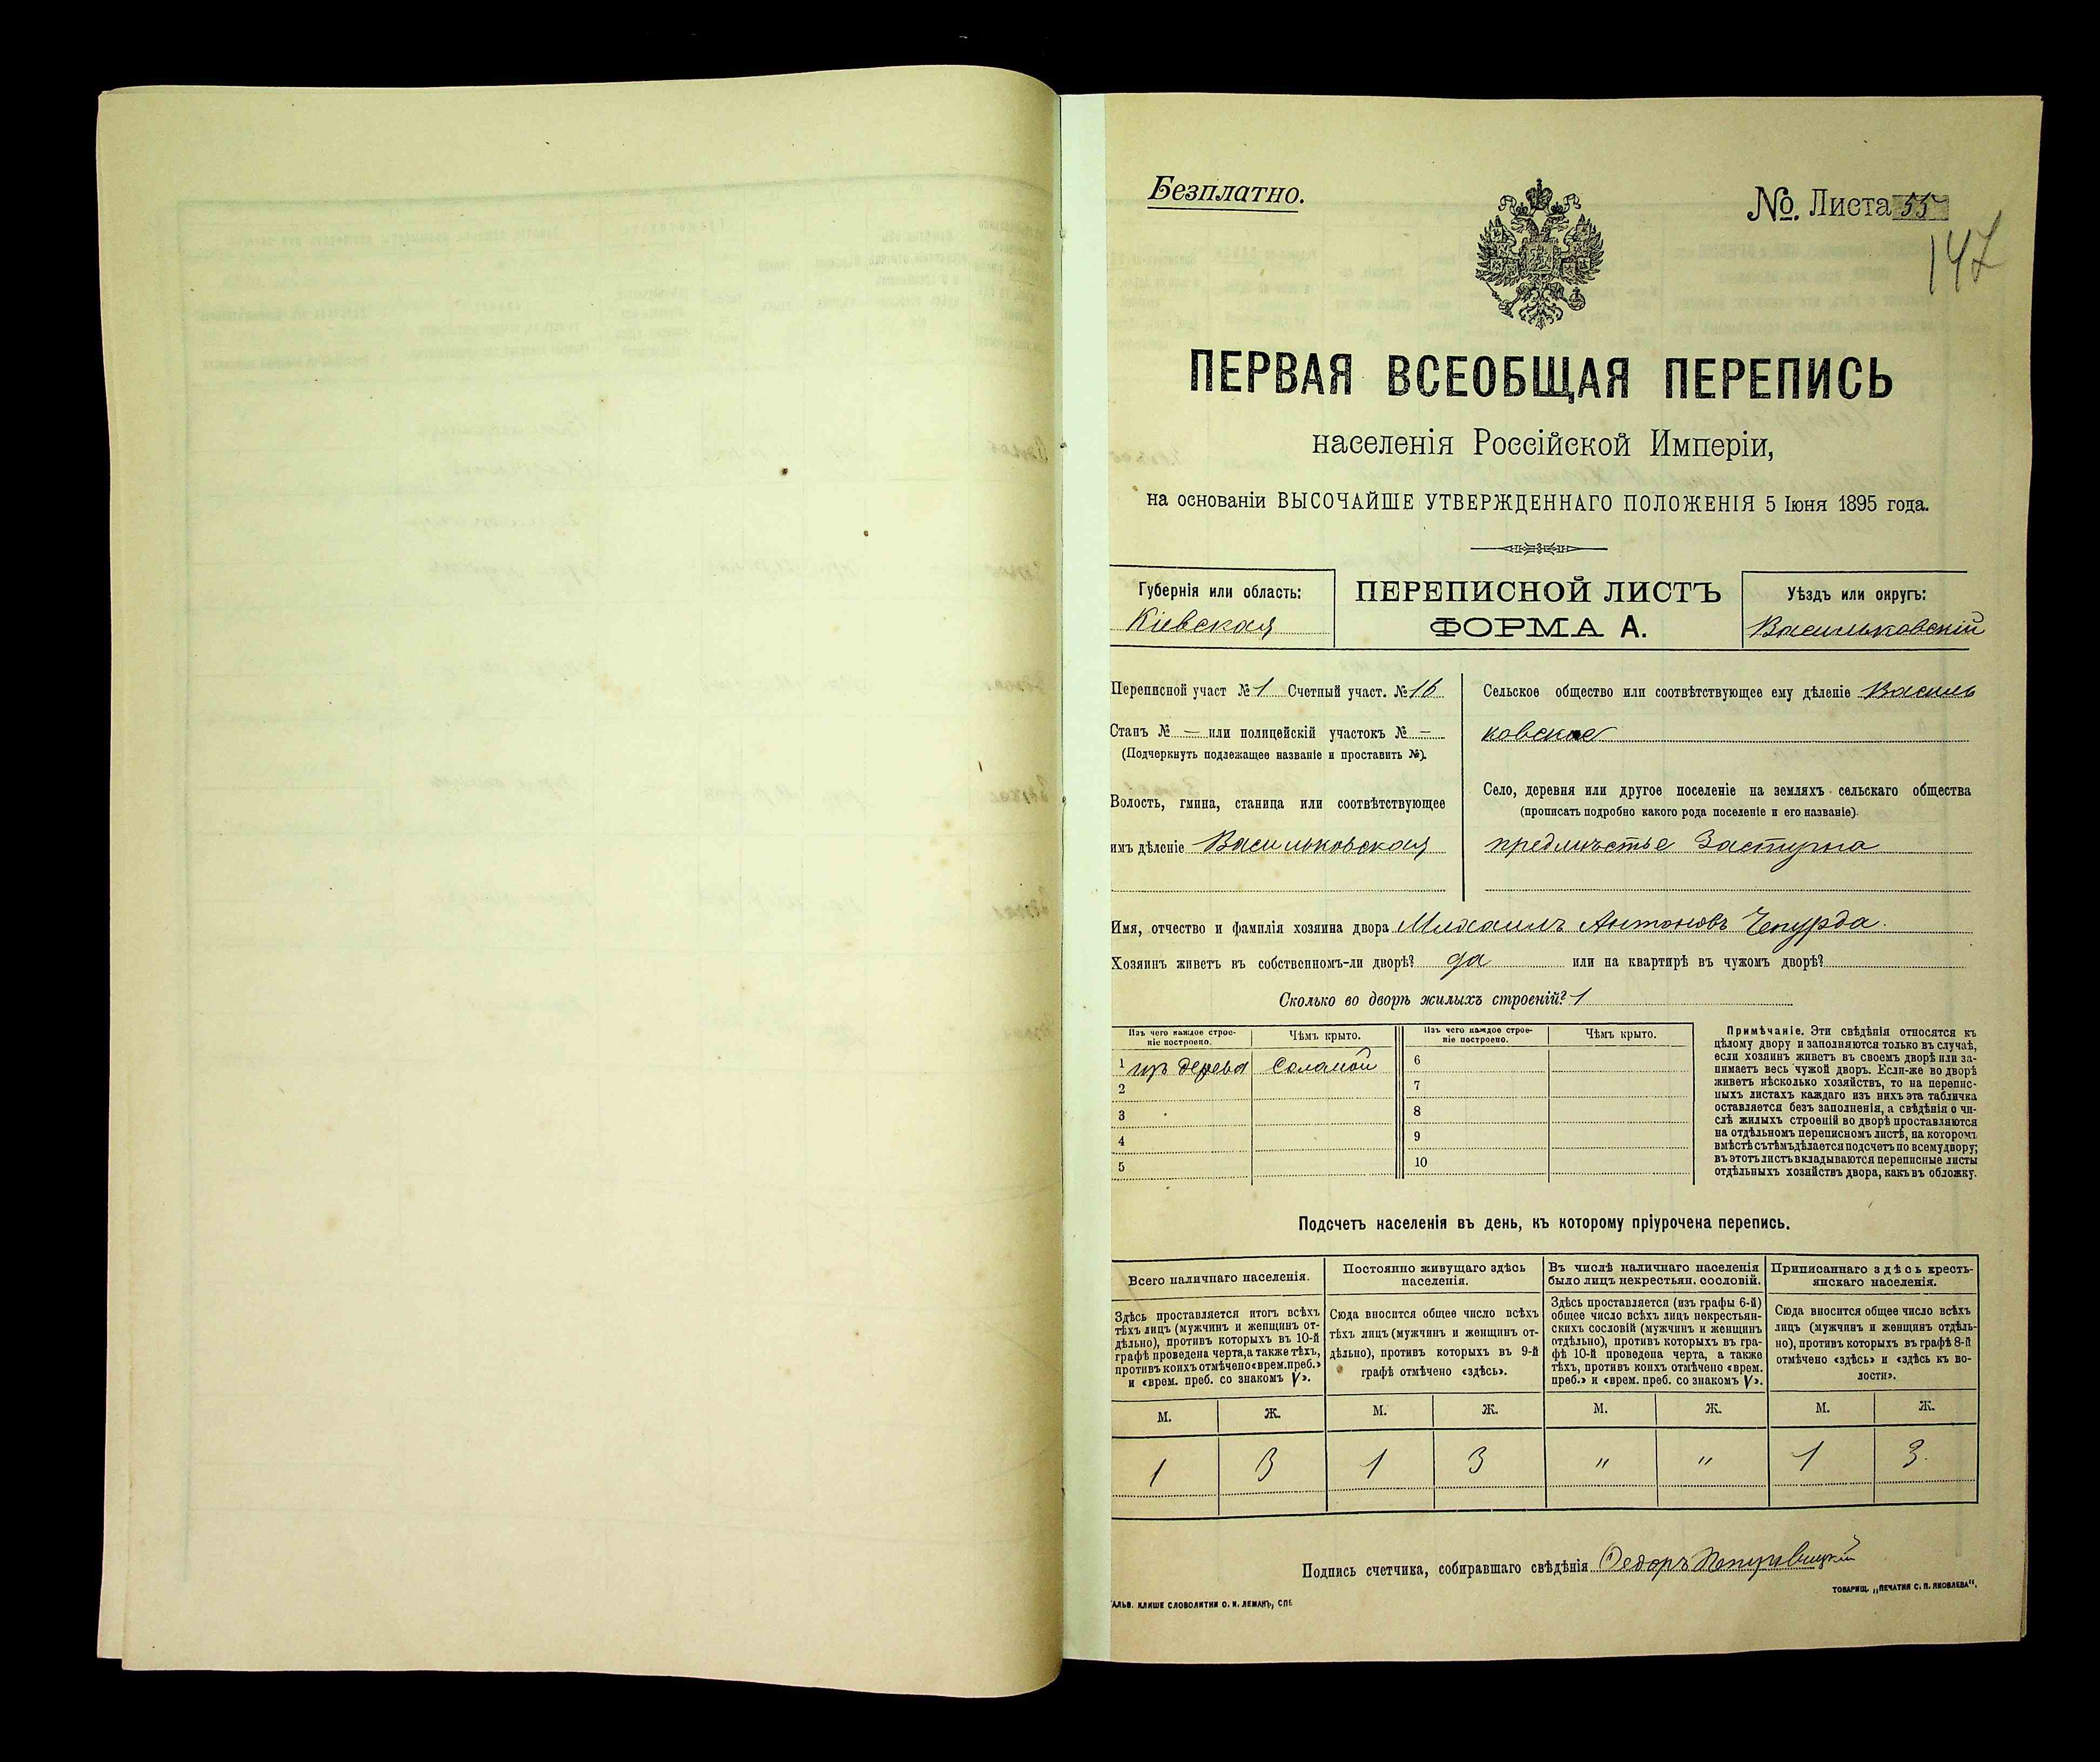 Безплатно.
№. Листа 55
147
ПЕРВАЯ ВСЕОБЩАЯ ПЕРЕПИСЬ
населенія Россійской Имперіи,
на основаніи ВЫСОЧАЙШЕ УТВЕРЖДЕННАГО ПОЛОЖЕНІЯ 5 Іюня 1895 года.
Губернія или область:
Кіевская
ПЕРЕПИСНОЙ ЛИСТЪ
ФОРМА А.
Уѣздъ или округъ:
Васильковскій
Переписной участ №1 Счетный участ. №16
Станъ № — или полицейскій участокъ № —
(Подчеркнуть подлежащее названіе и проставить №).
Волость, гмина, станица или соотвѣтствующее
имъ дѣленіе Васильковская
Сельское общество или соотвѣтствующее ему дѣленіе Василь
ковское
Село, деревня или другое поселеніе на земляхъ сельскаго общества
(прописать подробно какого рода поселеніе и его названіе).
предмѣстье Застугна
Имя, отчество и фамилія хозяина двора Михаилъ Антоновъ Чепурда.
Хозяинъ живетъ въ собственномъ-ли дворѣ? да или на квартирѣ въ чужомъ дворѣ?
Сколько во дворѣ жилыхъ строеній? 1
Изъ чего каждое строе-
ніе построено.
Чѣмъ крыто.
Изъ чего каждое строе-
ніе построено.
Чѣмъ крыто.
1 изъ дерева Соломой
2
3
4
5
6
7
8
9
10
Примѣчаніе. Эти свѣдѣнія относятся къ
цѣлому двору и заполняются только въ случаѣ,
если хозяинъ живетъ въ своемъ дворѣ или за-
нимаетъ весь чужой дворъ. Если-же во дворѣ
живетъ нѣсколько хозяйствъ, то на перепис-
ныхъ листахъ каждаго изъ нихъ эта табличка
оставляется безъ заполненія, а свѣдѣнія о чи-
слѣ жилыхъ строеній во дворѣ проставляются
на отдѣльномъ переписномъ листѣ, на которомъ
вмѣстѣ съ тѣмъ дѣлается подсчетъ по всему двору;
въ этотъ листъ вкладываются переписные листы
отдѣльныхъ хозяйствъ двора, какъ въ обложку.
Подсчетъ населенія въ день, къ которому пріурочена перепись.
Всего наличнаго населенія.
Здѣсь проставляется итогъ всѣхъ
тѣхъ лицъ (мужчинъ и женщинъ от-
дѣльно), противъ которыхъ въ 10-й
графѣ проведена черта, а также тѣхъ,
противъ коихъ отмѣчено «врем. преб.»
и «врем. преб. со знакомъ V».
Постоянно живущаго здѣсь
населенія.
Сюда вносится общее число всѣхъ
тѣхъ лицъ (мужчинъ и женщинъ от-
дѣльно), противъ которыхъ въ 9-й
графѣ отмѣчено «здѣсь».
Въ числѣ наличнаго населенія
было лицъ некрестьян. сословій.
Здѣсь проставляется (изъ графы 6-й)
общее число всѣхъ лицъ некрестьян-
скихъ сословій (мужчинъ и женщинъ
отдѣльно), противъ которыхъ въ гра-
фѣ 10-й проведена черта, а также
тѣхъ, противъ коихъ отмѣчено «врем.
преб.» и «врем. преб. со знакомъ V».
Приписаннаго здѣсь кресть-
янскаго населенія.
Сюда вносится общее число всѣхъ
лицъ (мужчинъ и женщинъ отдѣль-
но), противъ которыхъ въ графѣ 8-й
отмѣчено «здѣсь» и «здѣсь къ во-
лости».
М. Ж. М. Ж. М. Ж. М. Ж.
1 3 1 3 " " 1 3.
Подпись счетчика, собиравшаго свѣдѣнія Ѳедоръ
ГАЛЬВ. КЛИШЕ СЛОВОЛИТНИ О. И. ЛЕМАНЪ, СПБ
ТОВАРИЩ. „ПЕЧАТНЯ С. П. ЯКОВЛЕВА“,